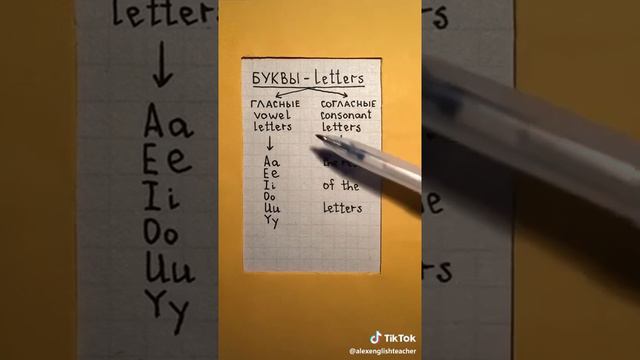 letters
Aa
Ee
Ii
Oo
Uu
Yy
БУКВЫ - Letters
ГЛАСНЫЕ
vowel
letters
Aa
Ee
Ii
Oo
Uu
Yy
СОГЛАСНЫЕ
consonant
letters
of the
letters
TikTok
@alexenglishteacher